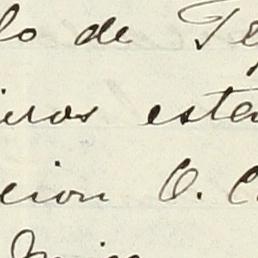 lo de Te
ieros esta
cion O. C